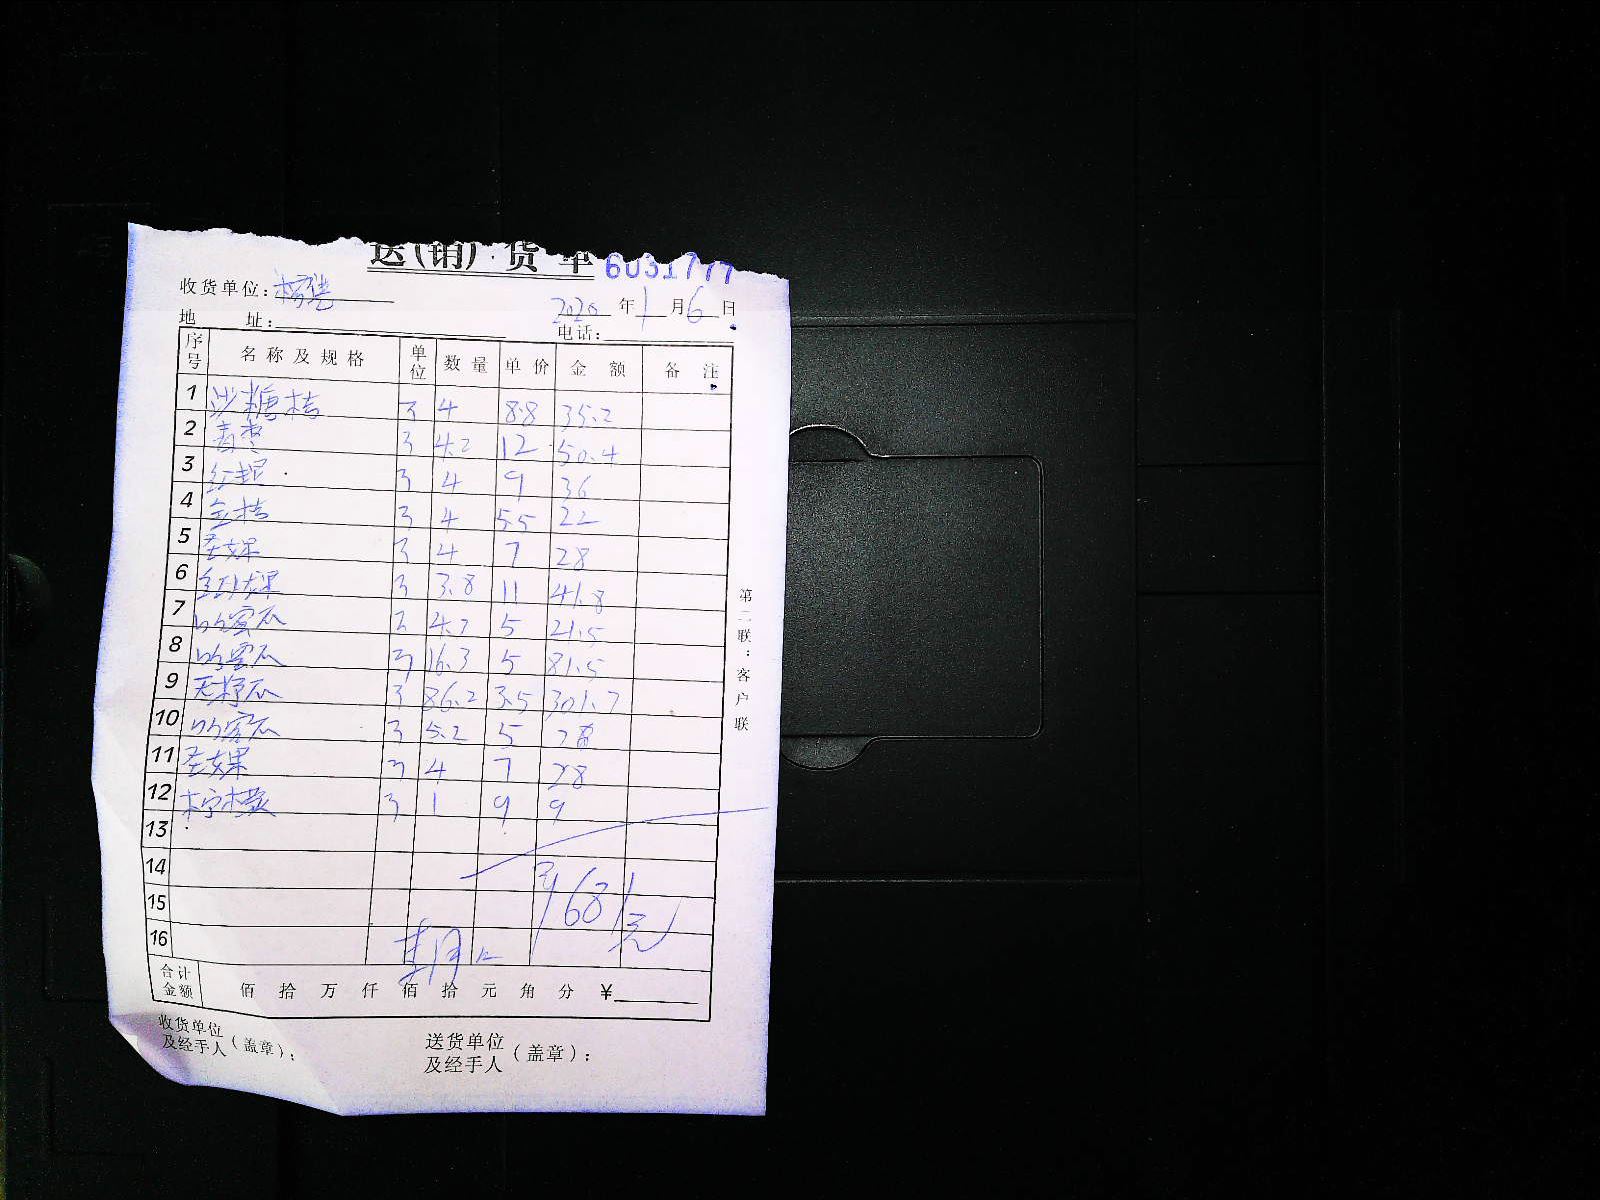 送(销)货单 6031777
收货单位:
2020年1月6日
地 址: 电话:
序号 名称及规格 单位 数量 单价 金额 备注
1 沙糖桔 3 4 8.8 35.2
2 青枣 3 4.2 12 50.4
3 红提 3 4 9 36
4 金桔 3 4 5.5 22
5 圣女果 3 4 7 28
6 3 3.8 11 41.8
7 哈密瓜 3 4.3 5 21.5
8 哈密瓜 3 16.3 5 81.5
9 无籽瓜 3 86.2 3.5 301.7
10 哈密瓜 3 5.2 5
11 圣女果 3 4 7 28
12 柠檬 3 1 9 9
13
14
15 681元
16
合计金额 佰 拾 万 仟 佰 拾 元 角 分 ¥
收货单位及经手人(盖章):
送货单位及经手人(盖章):
第二联:客户联